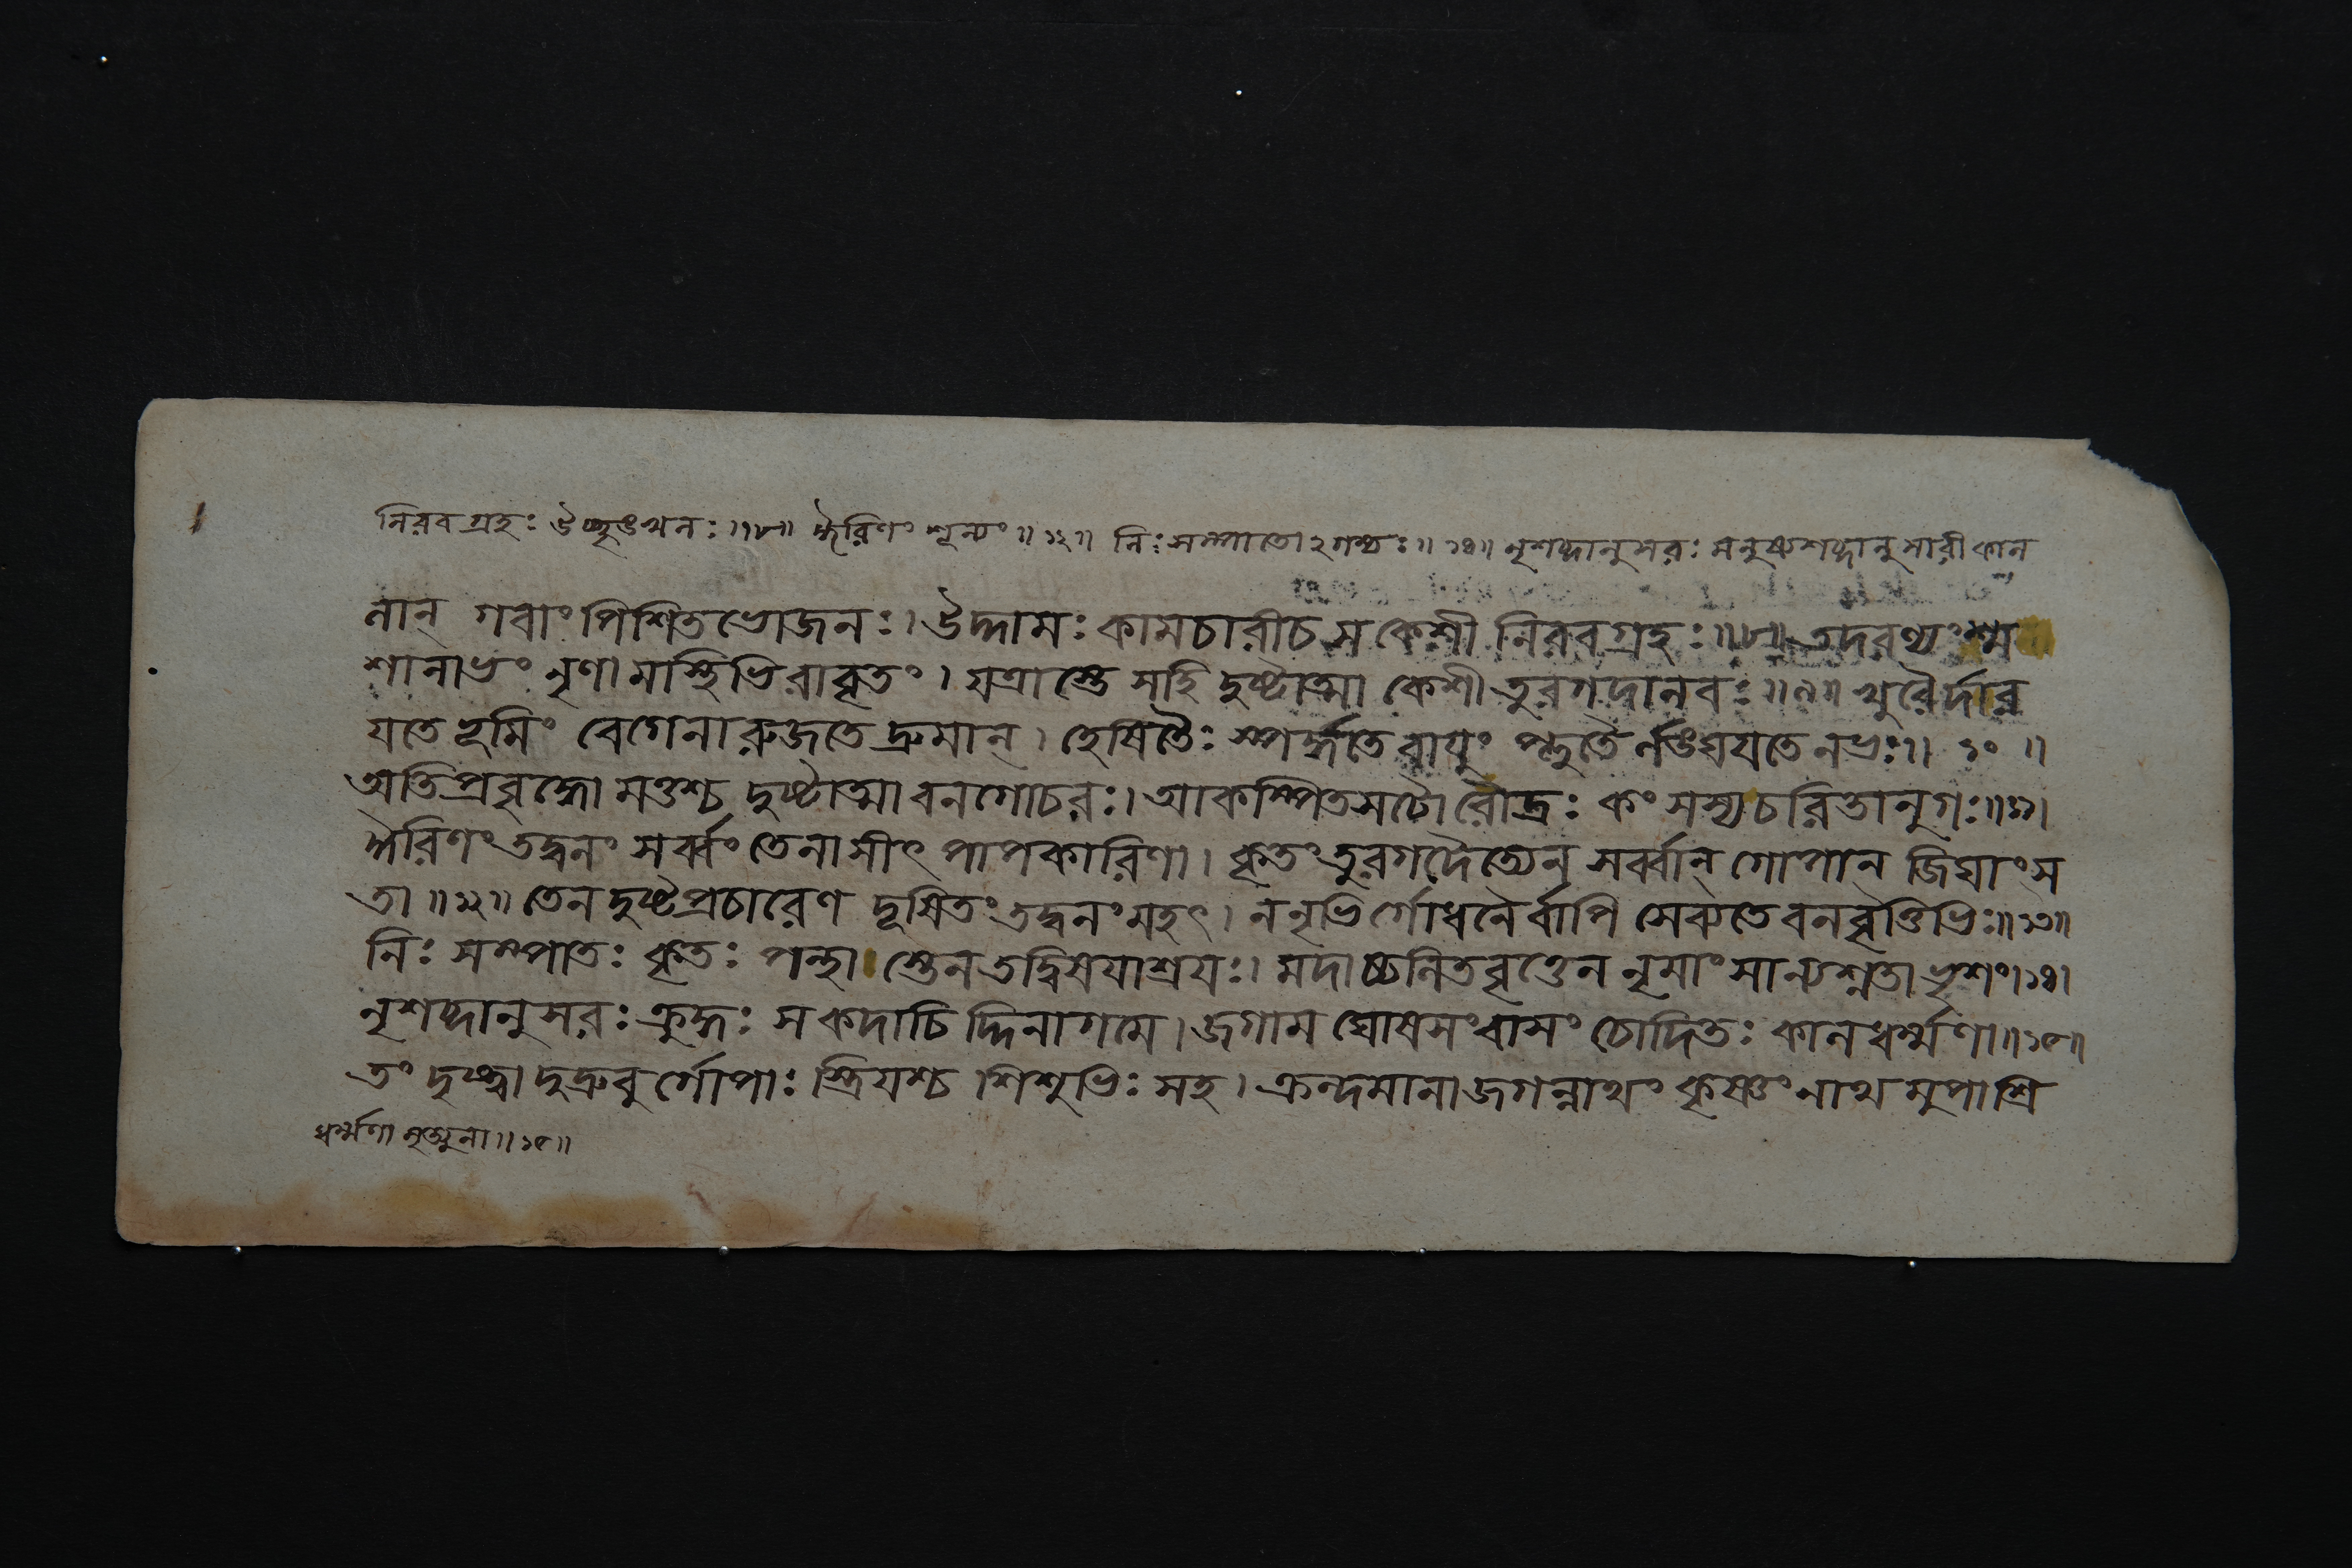 নিরবগ্রহঃ উচ্ছৃঙ্খলঃ ॥৮॥ ঈরিণং শূন্যং ॥১২॥ নিঃসম্পাতোঽগম্যঃ ॥১৪॥ নৃশব্দানুসরঃ মনুষ্যশব্দানুসারী কাল
নান্ গবাং পিশিতভোজনঃ। উদ্দামঃ কামচারী চ স কেশী নিরবগ্রহঃ ॥৮॥ তদরণ্যং শ্ম
শানাভং নৃণামস্থিভিরাবৃতং। যত্রাস্তে স হি দুষ্টাত্মা কেশী তুরগদানবঃ ॥৯॥ খুরৈর্দার
যতে ভূমিং বেগেনারুজতে দ্রুমান্। হেষিতৈঃ স্পর্দ্ধতে বায়ুং প্লুতৈর্লঙ্ঘযতে নভঃ॥ ১০ ॥
অতিপ্রবৃদ্ধো মত্তশ্চ দুষ্টাত্মা বনগোচরঃ। আকম্পিতসটো রৌদ্রঃ কংসস্য চরিতানুগঃ॥১১।
ঈরিণং তদ্বনং সর্ব্বং তেনাসীৎ পাপকারিণা। কৃতং তুরগদৈত্যেন সর্ব্বান্ গোপান্ জিঘাংস
তা ॥১২॥ তেন দুষ্টপ্রচারেণ দূষিতং তদ্বনং মহৎ। ন নৃভির্গোধনৈর্বাপি সেব্যতে বনবৃত্তিভিঃ॥১৩॥
নিঃ সম্পাতঃ কৃতঃ পন্থা স্তেন তদ্বিষযাশ্রযঃ। মদাচ্চলিতবৃত্তেন নৃমাংসান্যশ্নতা ভৃশং।১৪।
নৃশব্দানুসরঃ ক্রুদ্ধঃ স কদাচিদ্দিনাগমে। জগাম ঘোষসংবাসং চোদিতঃ কালধর্ম্মণা॥১৫॥
তং দৃষ্ট্বা দুদ্রুবুর্গোপাঃ স্ত্রিযশ্চ শিশুভিঃ সহ। ক্রন্দমানা জগন্নাথং কৃষ্ণং নাথমুপাশ্রি
ধর্ম্মণা মৃত্যুনা ॥১৫॥